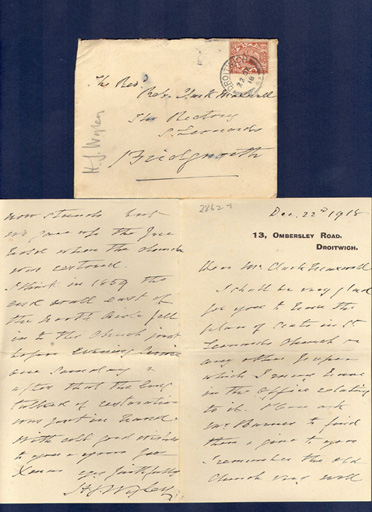 The Rev.
Rob. Clark Maxwell
The Rectory
St Leonards
Bridgnorth
DROITWICH
H.J. Wylen
2862
Dec. 22d 1918
13, OMBERSLEY ROAD.
DROITWICH.
Dear Mr. Clark Maxwell
I shall be very glad
for you to have the
plan of seats in St
Leonards Church or
any other papers
which I may have
in the office relating
to it. Please ask
Mr to find
them & give to you
I remember the old
Church very well
now stands but
we gave up the
when the church
was restored.
I think in 1859 the
end wall east of
the North Aisle fell
in to the Church just
before Evening Service
one Sunday &
after that the long
talked of restoration
was put in hand
With all good wishes
to you & yours for
Xmas
Yrs faithfully
H.J. Wyley